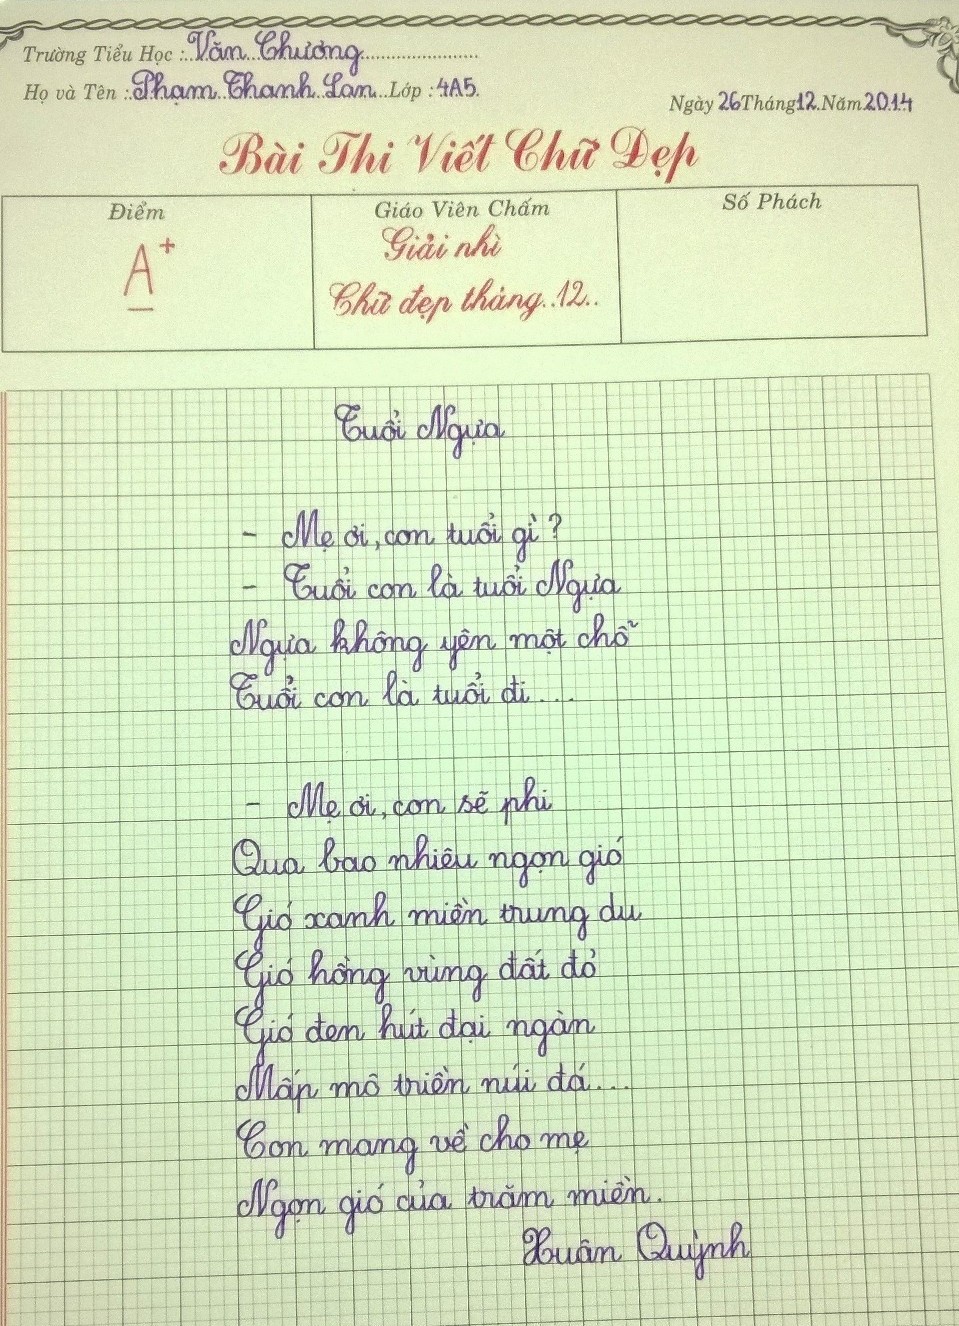 Trường Tiểu Học :..Văn..Chương.......................
Họ và Tên :.Phạm..Thanh..Lan...Lớp : 4A5.
Ngày 26 Tháng 12. Năm 2014
Bài Thi Viết Chữ Đẹp
Điểm
Giáo Viên Chấm
Số Phách
A+
Giải nhì
Chữ đẹp tháng..12..
Tuổi Ngựa
- Mẹ ơi, con tuổi gì?
- Tuổi con là tuổi Ngựa
Ngựa không yên một chỗ
Tuổi con là tuổi đi...
- Mẹ ơi, con sẽ phi
Qua bao nhiêu ngọn gió
Gió xanh miền trung du
Gió hồng vùng đất đỏ
Gió đen hút đại ngàn
Mấp mô triền núi đá...
Con mang về cho mẹ
Ngọn gió của trăm miền.
Xuân Quỳnh